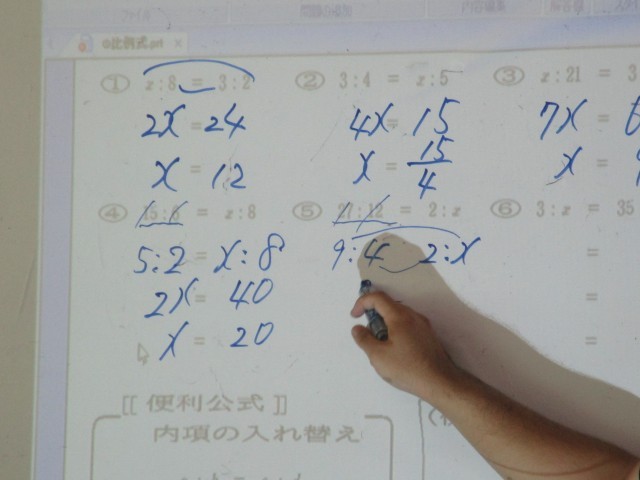 ファイル
内容編集
@比例式.prt ×
① x:8 = 3:2
② 3:4 = x:5
③ x:21 = 3
2x = 24
4x = 15
7x =
x = 12
x = 15/4
x =
④ 15:6 = x:8
⑤ 27:12 = 2:x
⑥ 3:x = 35
5:2 = x:8
9:4 2:x
=
2x = 40
=
x = 20
=
[[ 便利公式 ]]
内項の入れ替え